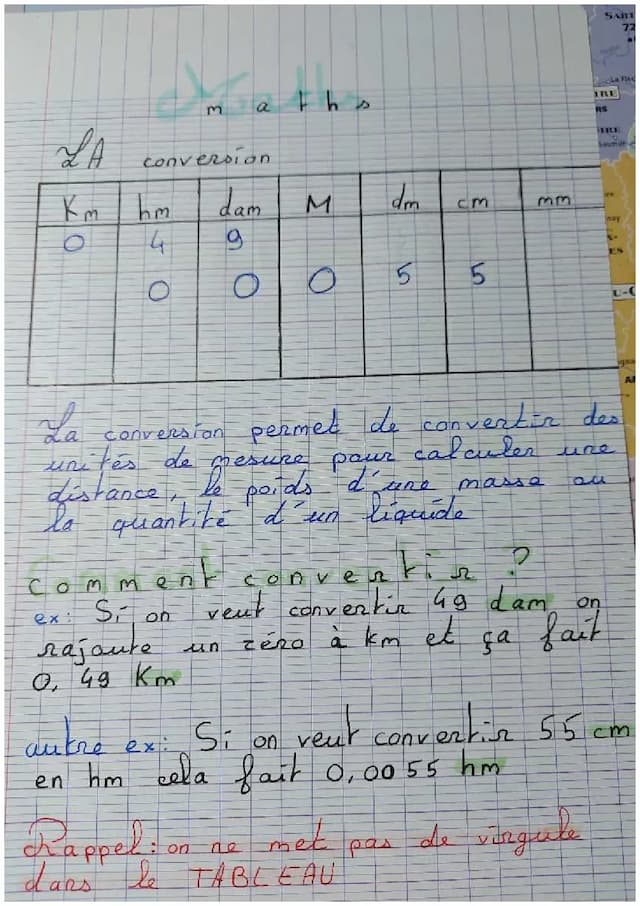 maths
LA conversion
Km hm dam M dm cm mm
0 4 9
0 0 0 5 5
La conversion permet de convertir des
unités de mesure pour calculer une
distance, le poids d'une masse ou
la quantité d'un liquide
comment convertir ?
ex: Si on veut convertir 49 dam on
rajoute un zéro à km et ça fait
0,49 Km
autre ex: Si on veut convertir 55 cm
en hm cela fait 0,0055 hm
Rappel: on ne met pas de virgule
dans le TABLEAU